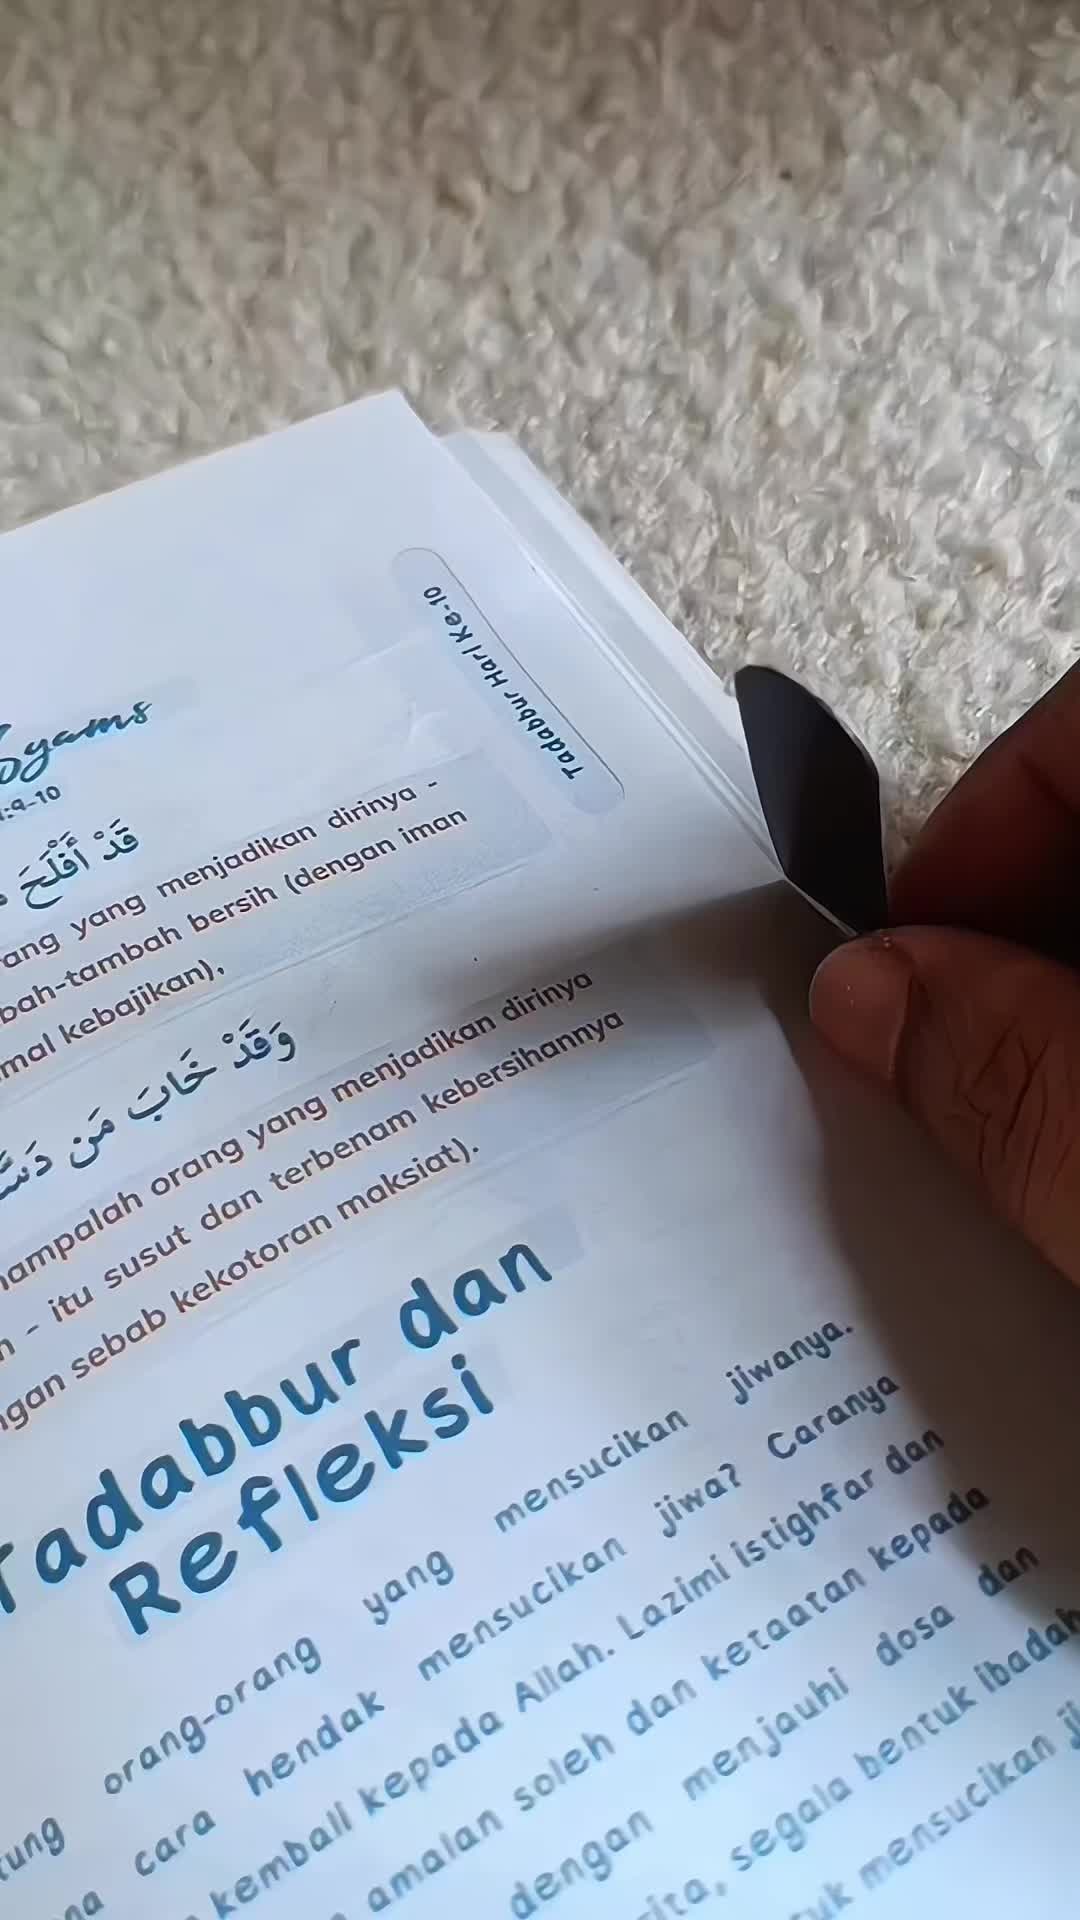 Tadabbur Hari Ke-10
Syams
:9-10
قَدْ أَفْلَحَ
ang yang menjadikan dirinya -
bah-tambah bersih (dengan iman
mal kebajikan),
وَقَدْ خَابَ مَن
hampalah orang yang menjadikan dirinya
- itu susut dan terbenam kebersihannya
gan sebab kekotoran maksiat).
Tadabbur dan
Refleksi
tung orang-orang yang mensucikan jiwanya.
na cara hendak mensucikan jiwa? Caranya
kembali kepada Allah. Lazimi istighfar dan
amalan soleh dan ketaatan kepada
dengan menjauhi dosa dan
rita, segala bentuk ibadah
uk mensucikan ji